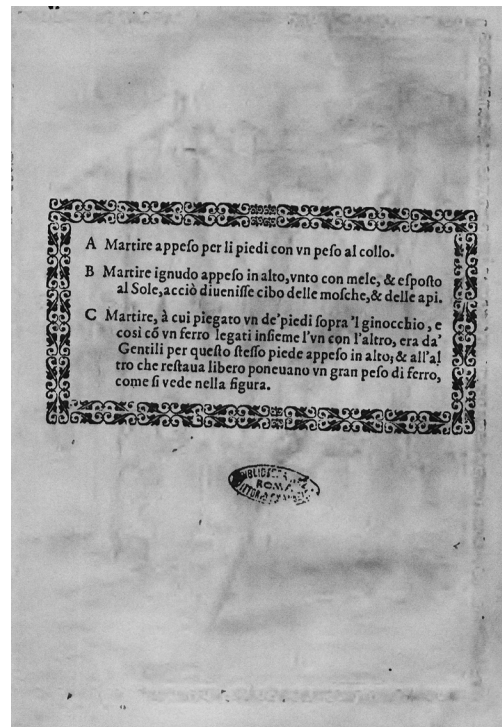 A Martire appeſo per li piedi con vn peſo al collo.
B Martire ignudo appeſo in alto, vnto con mele, & eſpoſto
al Sole, acciò diueniſſe cibo delle moſche, & delle api.
C Martire, à cui piegato vn de' piedi ſopra 'l ginocchio, e
così cõ vn ferro legati inſieme l'vn con l'altro, era da'
Gentili per queſto ſteſſo piede appeſo in alto; & all'al
tro che reſtaua libero poneuano vn gran peſo di ferro,
come ſi vede nella figura.
ROMA